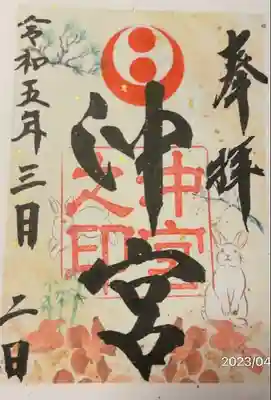 奉拝
沖宮
沖宮之印
令和五年三日 二日
2023/04